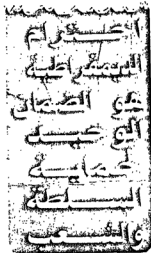 احترام
الديمقراطية
هو الضمان
الوحيد
لحماية
السلطة
والشعب